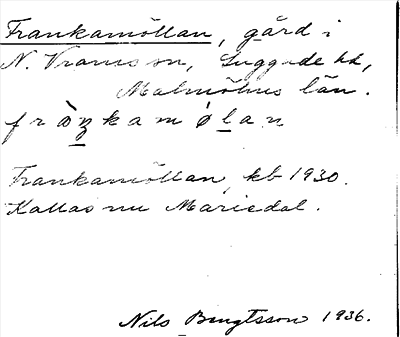 Frankamöllan, gård i
N. Vrams sn, Luggude hd,
Malmöhus län.
fràŋkamø̀lan
Frankamöllan, kb 1930.
Kallas nu Mariedal.
Nils Bengtsson 1936.